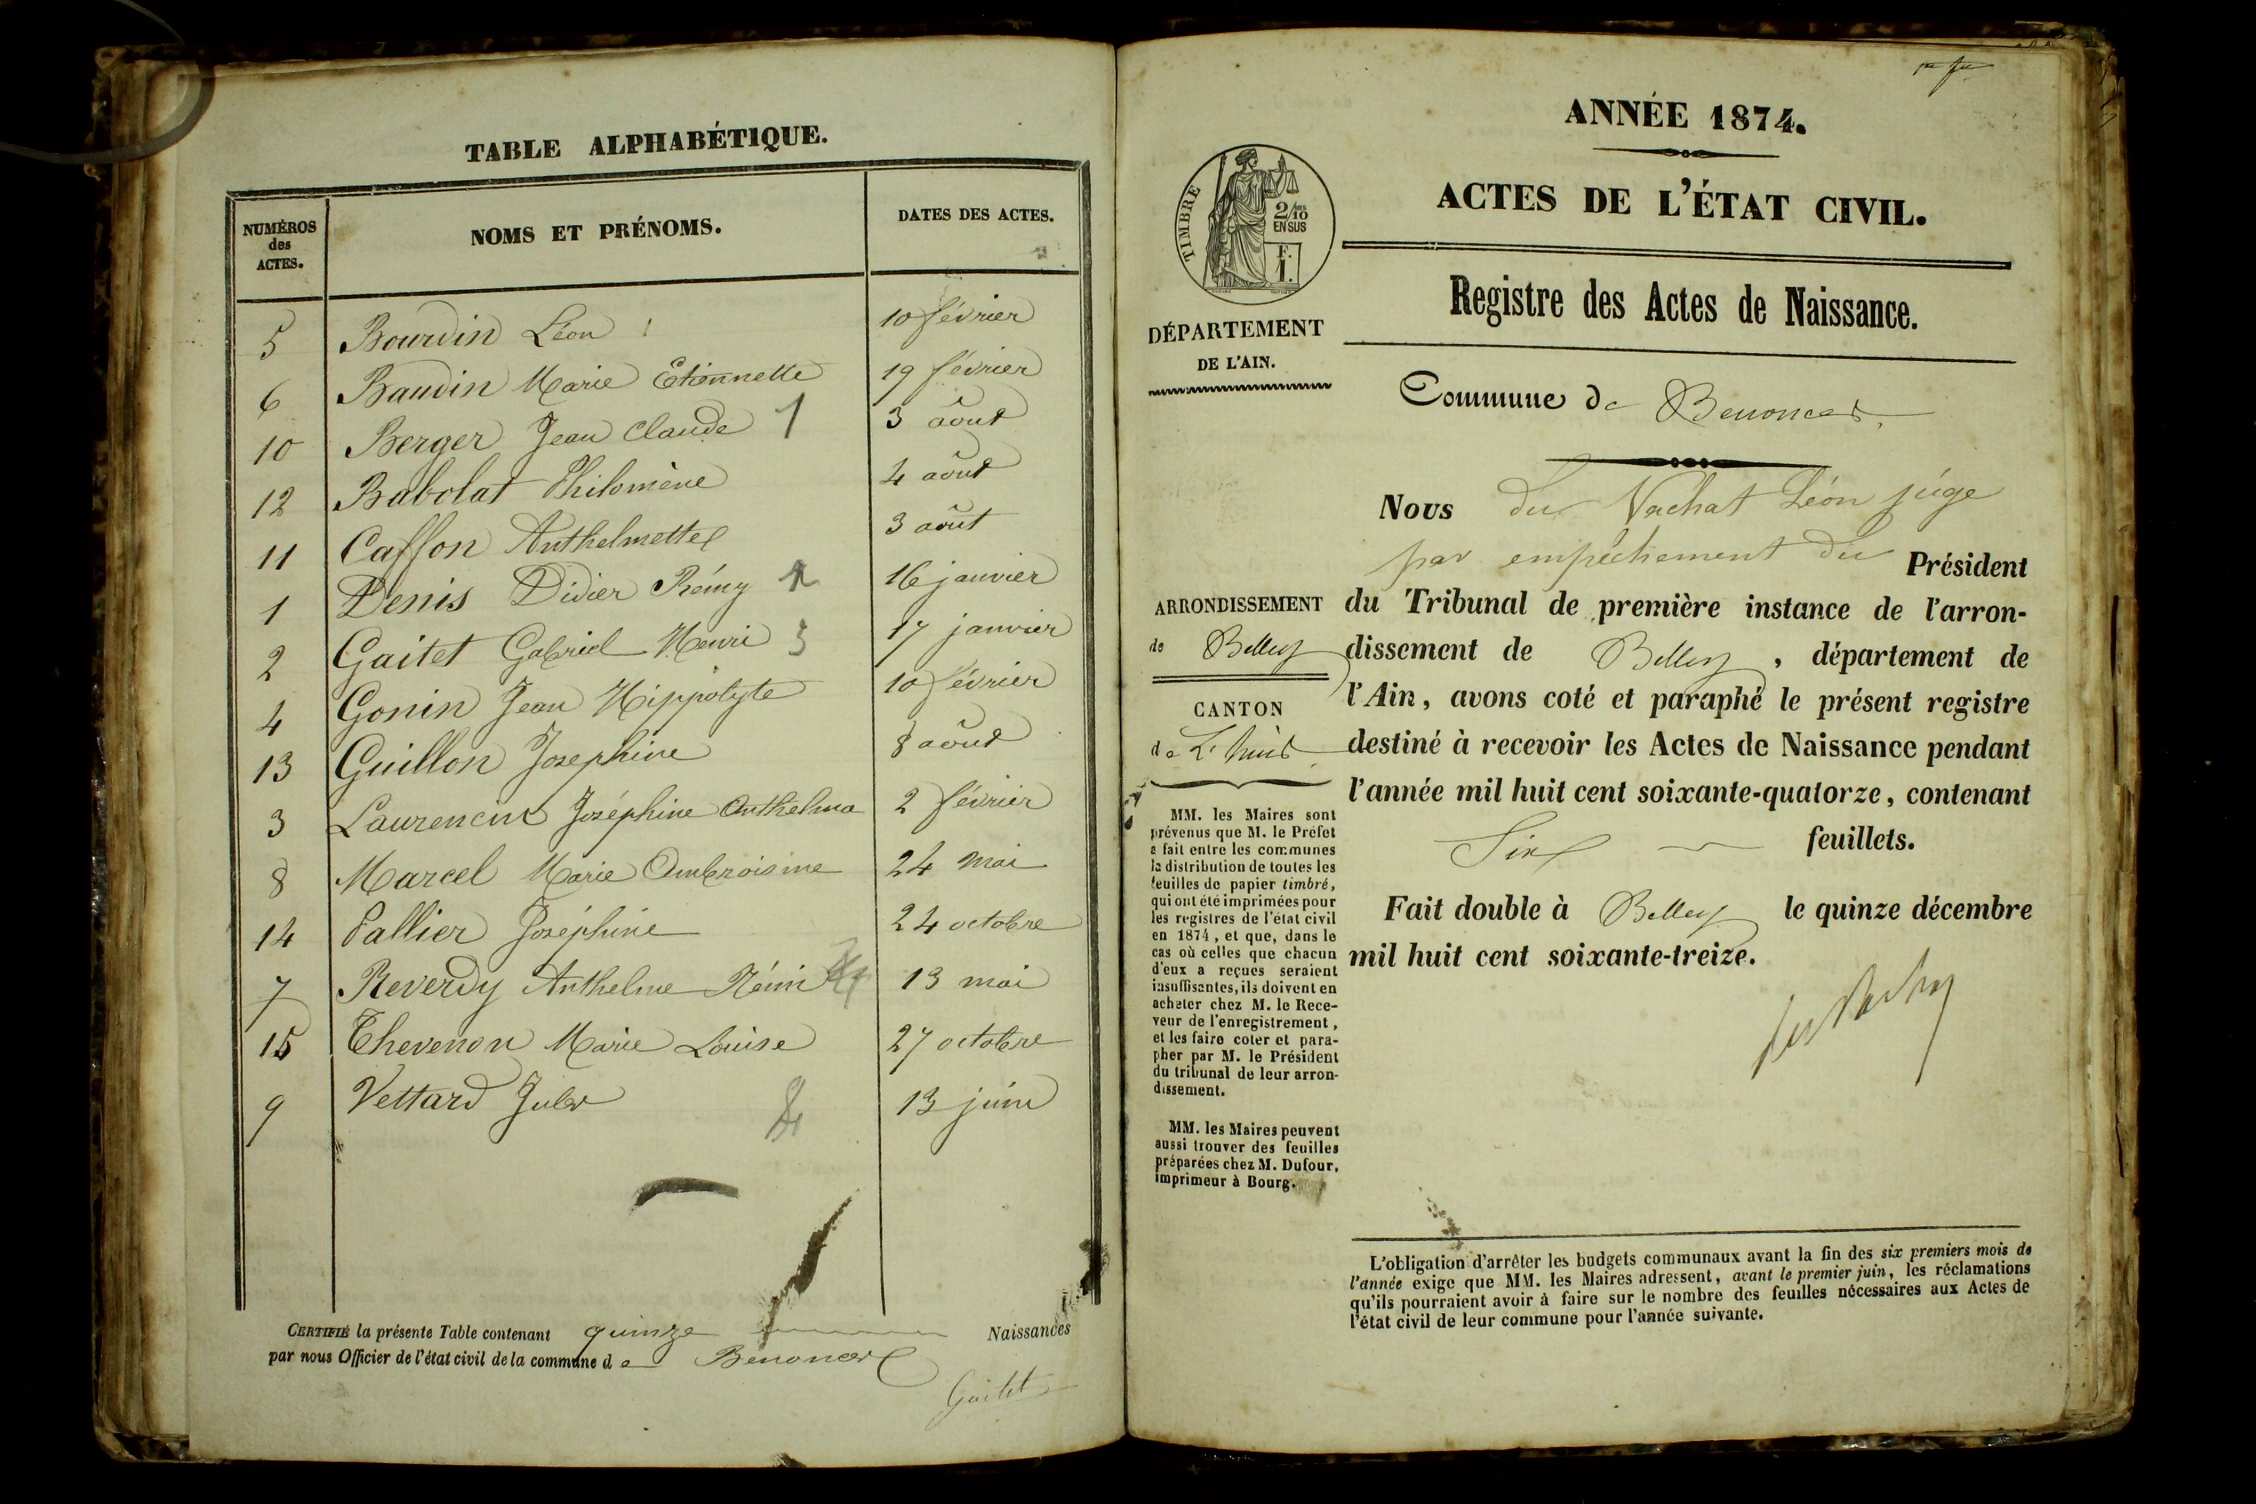 TABLE ALPHABÉTIQUE.
NUMÉROS
des
ACTES.
NOMS ET PRÉNOMS.
DATES DES ACTES.
5 Bourdin Léon 10 février
6 Baudin Marie Etiennette 19 février
10 Berger Jean Claude 1 3 août
12 Babolat Philomène 4 août
11 Caffon Anthelmette 3 août
1 Denis Didier Rémy 16 janvier
2 Gaitet Gabriel Henri 3 17 janvier
4 Gonin Jean Hippolyte 10 février
13 Guillon Josephine 8 août
3 Laurencin Joséphine Anthelma 2 février
8 Marcel Marie Ambroisine 24 mai
14 Pallier Joséphine 24 octobre
7 Reverdy Anthelme Rémi 13 mai
15 Thevenon Marie Louise 27 octobre
9 Vettard Jules 13 juin
CERTIFIÉ la présente Table contenant quinze Naissances
par nous Officier de l'état civil de la commune de Benonces
Gaitet
ANNÉE 1874.
ACTES DE L'ÉTAT CIVIL.
TIMBRE
2/10
EN SUS
F.
1.
Registre des Actes de Naissance.
DÉPARTEMENT
DE L'AIN.
Commune de Benonces
Nous du Vachat Léon juge
par empêchement du Président
du Tribunal de première instance de l'arron-
dissement de Belley, département de
l'Ain, avons coté et paraphé le présent registre
destiné à recevoir les Actes de Naissance pendant
l'année mil huit cent soixante-quatorze, contenant
Six feuillets.
Fait double à Belley le quinze décembre
mil huit cent soixante-treize.
ARRONDISSEMENT
de Belley
CANTON
de L'huis
MM. les Maires sont
prévenus que M. le Préfet
a fait entre les communes
la distribution de toutes les
feuilles de papier timbré,
qui ont été imprimées pour
les registres de l'état civil
en 1874, et que, dans le
cas où celles que chacun
d'eux a reçues seraient
insuffisantes, ils doivent en
acheter chez M. le Rece-
veur de l'enregistrement,
et les faire coter et para-
pher par M. le Président
du tribunal de leur arron-
dissement.
MM. les Maires peuvent
aussi trouver des feuilles
préparées chez M. Dufour,
imprimeur à Bourg.
L'obligation d'arrêter les budgets communaux avant la fin des six premiers mois de
l'année exige que MM. les Maires adressent, avant le premier juin, les réclamations
qu'ils pourraient avoir à faire sur le nombre des feuilles nécessaires aux Actes de
l'état civil de leur commune pour l'année suivante.